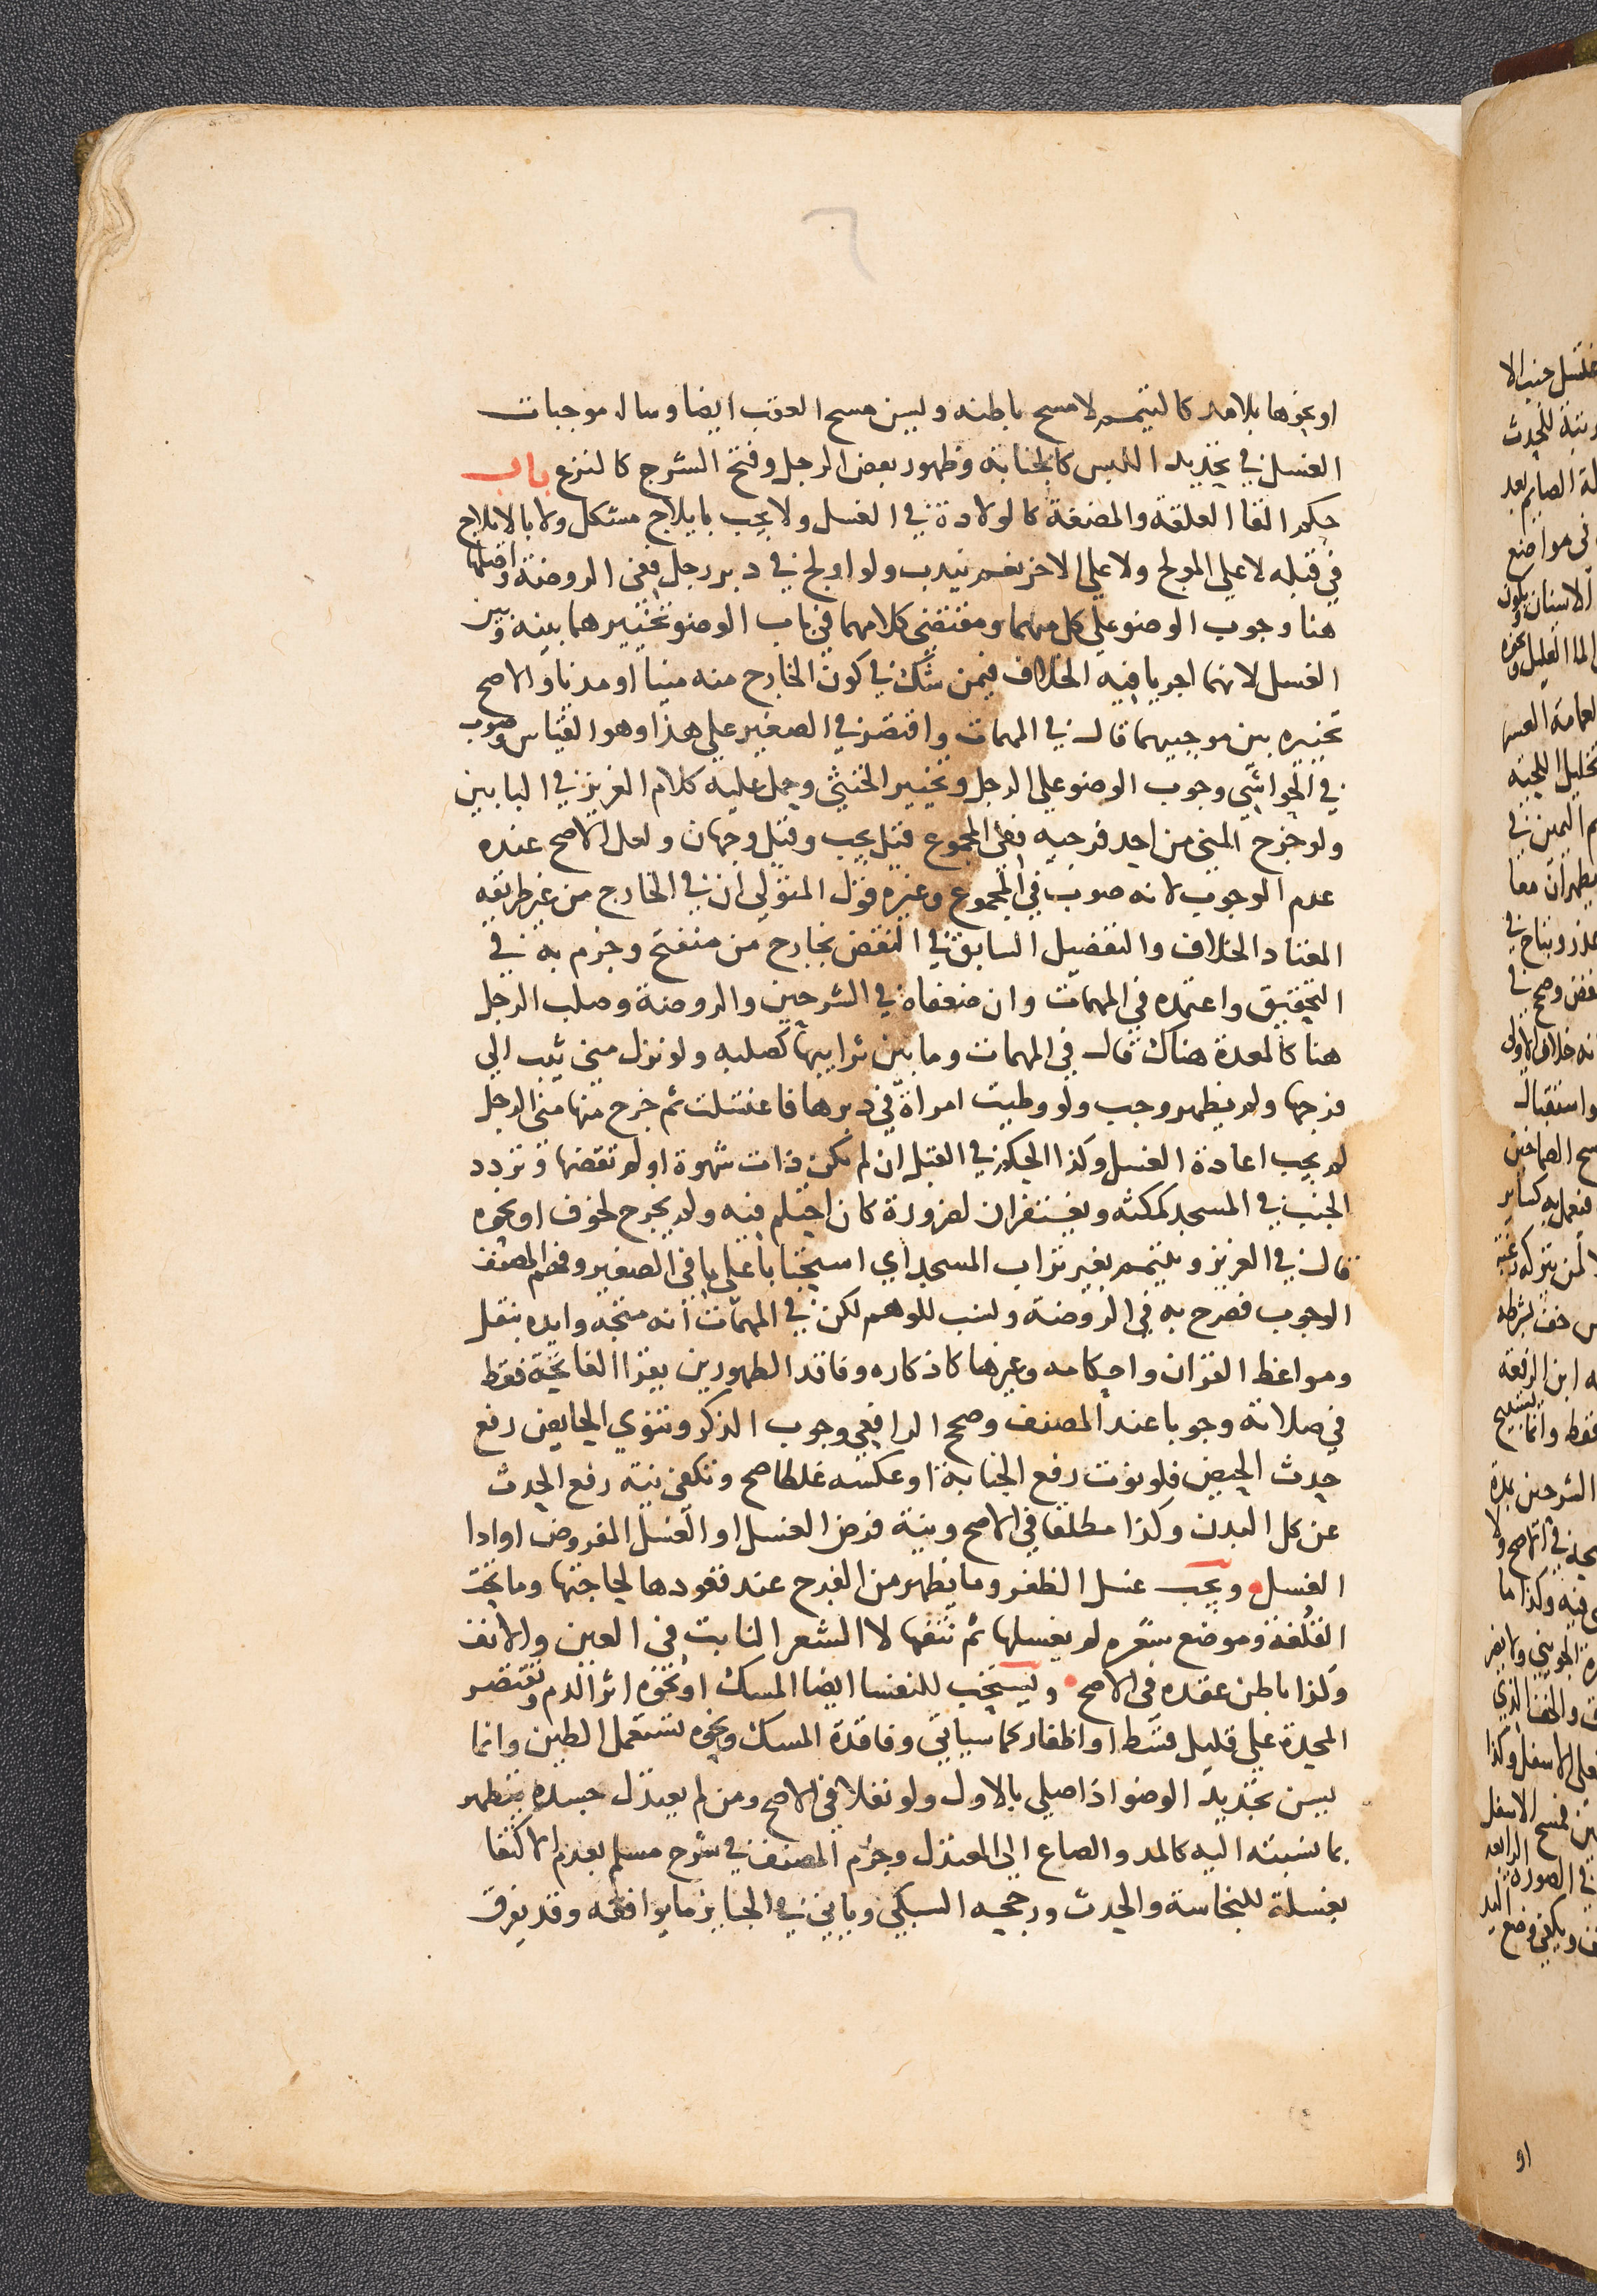 او نحوها بلا مد كالتيمم لا مسح باطنه وليس مسح العقب ايضا وساير موجبات
الغسل في تجديد اللبس كالجنابة وظهور بعض الرجل وفتح الشرج كالنزع باب
حكم القا العلقة والمضغة كالولادة في الغسل ولا يجب بايلاج مشكل ولا بالايلاج
في قبله لا على المولج ولا على الاخر نعم يندب ولو اولج في دبر رجل ففي الروضة واصلها
هنا وجوب الوضو على كل منهما ومقتضى كلامهما في باب الوضو تخييرهما بينه وبين
الغسل لانهما اجريا فيه الخلاف فيمن شك في كون الخارج منه منيا او مذيا والاصح
تخييره بين موجبيهما قال في المهمات واقتصر في الصغير على هذا وهو القياس وصوب
في الجواشي وجوب الوضو على الرجل وتخيير الخنثى وحمل عليه كلام العزيز في البابين
ولو خرج المني من احد فرجيه ففي المجموع قيل يجب وقيل وجهان ولعل الاصح عنده
عدم الوجوب لانه صوب في المجموع وغيره قول المتولي ان في الخارج من غير طريقه
المعتاد الخلاف والتفضيل السابق في النقض بخارج من منفتح وجزم به في
التحقيق واعتمده في المهمات وان ضعفاه في الشرحين والروضة وصلب الرجل
هنا كالمعدة هناك قال في المهمات وما بين ترايبها كصلبه ولو نزل مني ثيب الى
فرجها ولم يظهر وجب ولو وطيت امراة في دبرها فاغتسلت ثم خرج منها مني الرجل
لم يجب اعادة الغسل وكذا الحكم في القبل ان لم تكن ذات شهوة او لم تقضها وتردد
الجنب في المسجد كمكثه ويغتفران لضرورة كان احتلم فيه ولم يخرج لخوف او نحوه
قال في العزيز ويتيمم بغير تراب المسجد اي استحبابا على ما في الصغير وفهم المصنف
الوجوب فصرح به في الروضة ونسب للوهم لكن في المهمات انه متجه وايده بنقل
ومواعظ القران واحكامه وغيرها كاذكاره وفاقد الطهورين يقرا الفاتحة فقط
في صلاته وجوبا عند المصنف وصحح الرافعي وجوب الذكر وتنوي الحايض رفع
حدث الحيض فلو نوت رفع الجنابة او عكسه غلطا صح وتكفي نية رفع الحدث
عن كل البدن وكذا مطلقا في الاصح ونية فرض الغسل او الغسل المفروض او ادا
الغسل ويجب غسل الظفر وما يظهر من الفرج عند قعودها لحاجتها وما تحت
القلفة وموضع شعره لم يغسلها ثم نتفها لا الشعر النابت في العين والانف
وكذا باطن عقده في الاصح ويستحب للنفسا ايضا المسك او نحوه اثر الدم وتقتصر
المحدة على قليل قسط او اظفار كما سياتي وفاقدة المسك ونحوه تستعمل الطين وانما
يسن تجديد الوضو اذا صلى بالاول ولو نفلا في الاصح ومن لم يعتدل جسده يتطهر
بما نسبته اليه كالمد والصاع الى المعتدل وجزم المصنف في شرح مسلم بعدم الاكتفا
بغسلة للنجاسة والحدث ورجحه السبكي وياتي في الجنايز ما يوافقه وقد يفرق